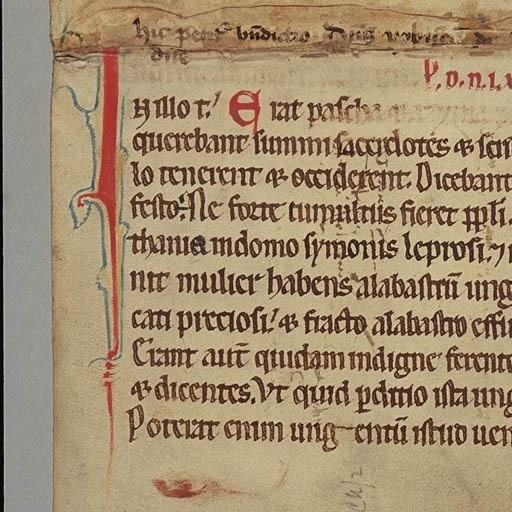 hic petit
P.D.N.I.X
IN illo t.' Erat pascha
querebant summi sacerdotes & scri
lo tenerent & occiderent. Dicebant
festo. Ne forte tumultus fieret ppli.
thania in domo symonis leprosi. ⁊
nit mulier habens alabastrū ung
cati preciosi.' & fracto alabastro effu
Erant aut̄ quidam indigne ferente
& dicentes. Vt quid pditio ista ung
Poterat enim ung entū istud uen